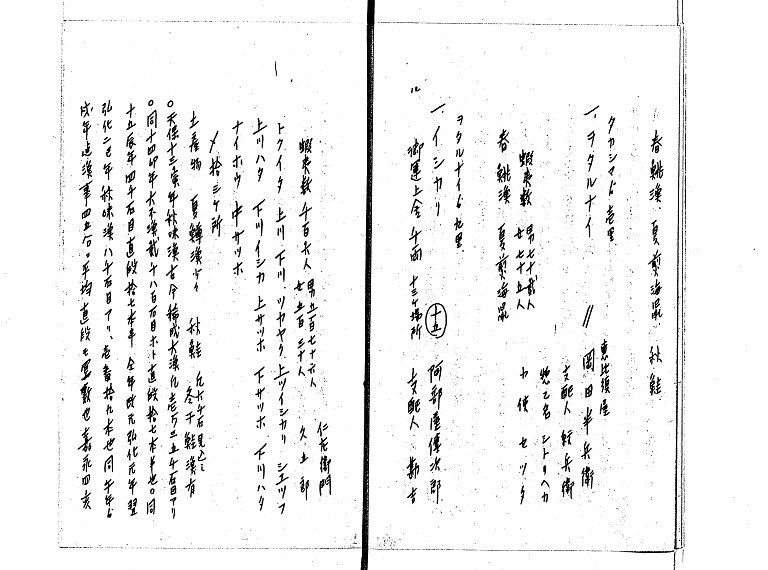 春鯡漁、夏煎海鼠、秋鮭
タカシマゟ壱里
一、ヲタルナイ 〃 恵比須屋 岡田半兵衛
支配人 紋兵衛
惣乙名 シトリヘカ
蝦夷数 男七十貳人 女七十五人
小使 セツタ
春鯡漁、夏煎海鼠
ヲタルナイゟ九里
一、イシカリ 十五 阿部屋傳次郎
御運上金千両 十三ヶ場所 支配人 勘吉
仁左衛門
蝦夷数 千百六人 男五百七十六人 女五百三十人 久五郎
トクイタ 上川 下川 ツカヤウ 上ツイシカリ シエツフ
上川ハタ 下ツイシカ 上サツホ 下サツホ 下川ハタ
ナイホウ 中サツホ
〆拾三ヶ所
土産物 夏鱒漁少々 秋鮭 凡六千石見込ミ 冬干鮭漁有
○天保十三寅年秋味漁古今稀成大漁凡壱万三五千石目アリ
○同十四卯年大不漁貳千八百石目ホト直段拾七本半也○同
十五辰年四千石目直段拾七本半 今年改元弘化元年翌
弘化二巳年秋味漁八千石目アリ、壱番拾九本也 同午年ゟ
戌年迄漁事四五合○平均直段モ冥敷也 嘉永四亥